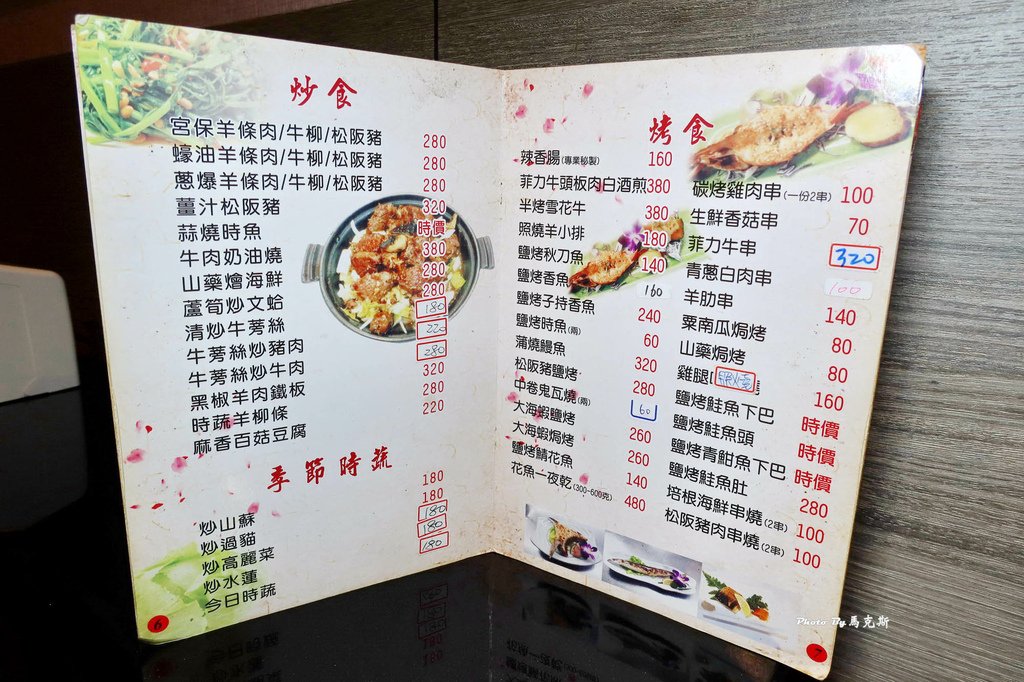 炒食
宮保羊條肉/牛柳/松阪豬 280
蠔油羊條肉/牛柳/松阪豬 280
蔥爆羊條肉/牛柳/松阪豬 280
薑汁松阪豬 320
蒜燒時魚 時價
牛肉奶油燒 380
山藥燴海鮮 280
蘆筍炒文蛤 280
清炒牛蒡絲 180
牛蒡絲炒豬肉 220
牛蒡絲炒牛肉 280
黑椒羊肉鐵板 320
時蔬羊柳條 280
麻香百菇豆腐 220
季節時蔬
炒山蘇 180
炒過貓 180
炒高麗菜 180
炒水蓮 180
今日時蔬 180
6
烤食
辣香腸(專業秘製) 160
菲力牛頭板肉白酒煎 380
半烤雪花牛 380
照燒羊小排 180
鹽烤秋刀魚 140
鹽烤香魚 160
鹽烤子持香魚 240
鹽烤時魚(兩) 60
蒲燒鰻魚 320
松阪豬鹽烤 280
中卷鬼瓦燒(兩) 60
大海蝦鹽烤 260
大海蝦焗烤 260
鹽烤鯖花魚 140
花魚一夜乾(300-600克) 480
碳烤雞肉串(一份2串) 100
生鮮香菇串 70
菲力牛串 320
青蔥白肉串 100
羊肋串 140
栗南瓜焗烤 80
山藥焗烤 80
雞腿[照燒] 160
鹽烤鮭魚下巴 時價
鹽烤鮭魚頭 時價
鹽烤青魽魚下巴 時價
鹽烤鮭魚肚 280
培根海鮮串燒(2串) 100
松阪豬肉串燒(2串) 100
7
Photo By 馬克斯